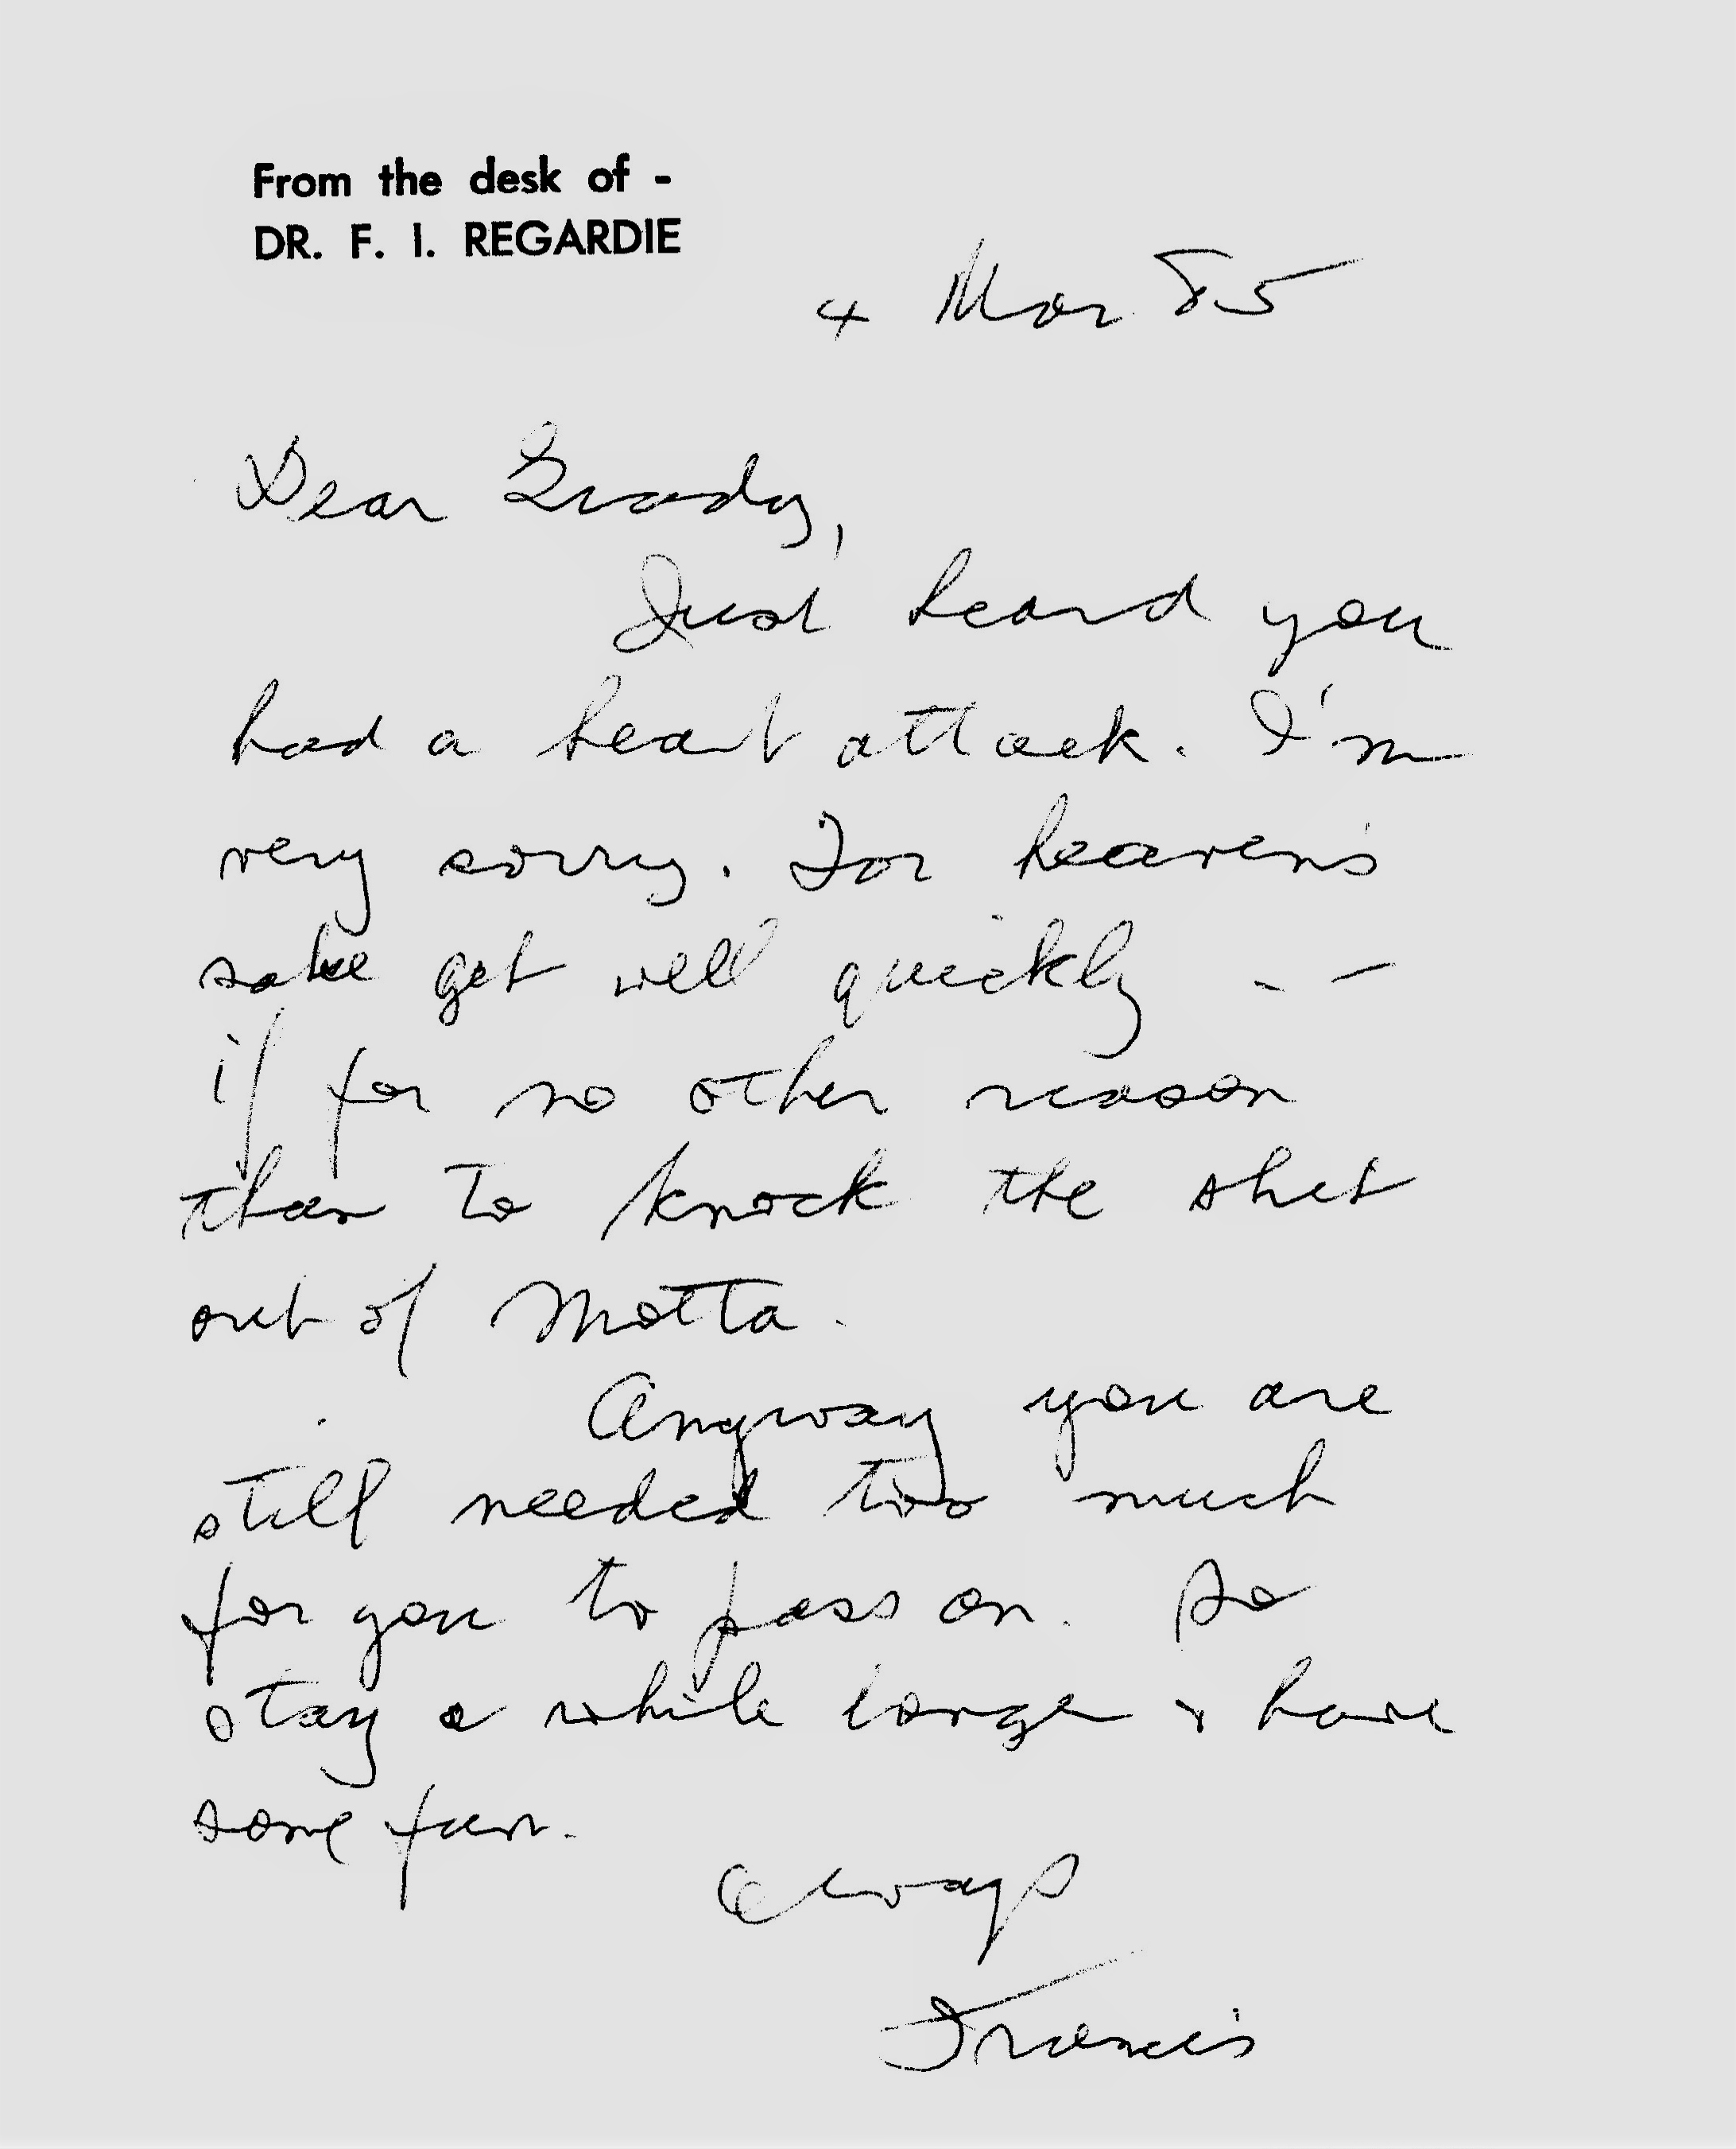 From the desk of -
DR. F. I. REGARDIE
4 Mar 85
Dear Grady,
Just heard you
had a heart attack. I'm
very sorry. For heaven's
sake get well quickly --
if for no other reason
than to knock the shit
out of Motta.
Anyway you are
still needed too much
for you to pass on. So
stay a while longer & have
some fun.
Always
Francis